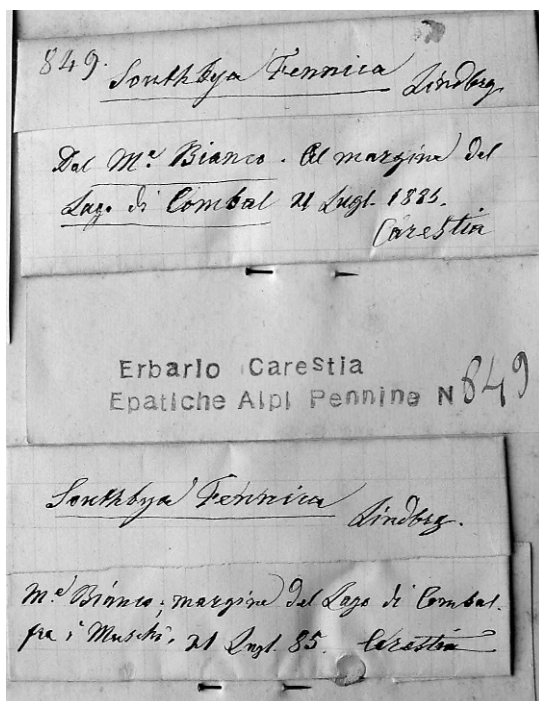 849.
Southbya Fennica Lindbrg.
Dal M.e Bianco. Al margine del
Lago di Combal 21 Lugl. 1885.
Carestia
Erbario Carestia
Epatiche Alpi Pennine N 849
Southbya Fennica Lindbrg.
M.e Bianco; margine del Lago di Combal.
fra i Muschi, 21 Lugl. 85. Carestia